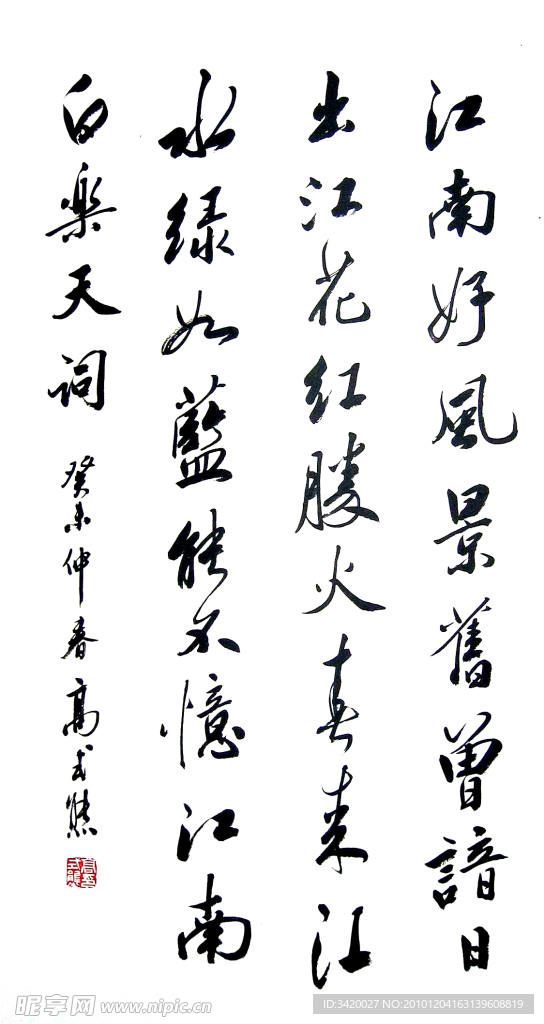 江南好風景舊曾諳日
出江花红勝火春来江
水绿如藍能不憶江南
白楽天词
癸未仲春高式熊
昵享网 www.nipic.cn
ID:3420027 NO:20101204163139608819